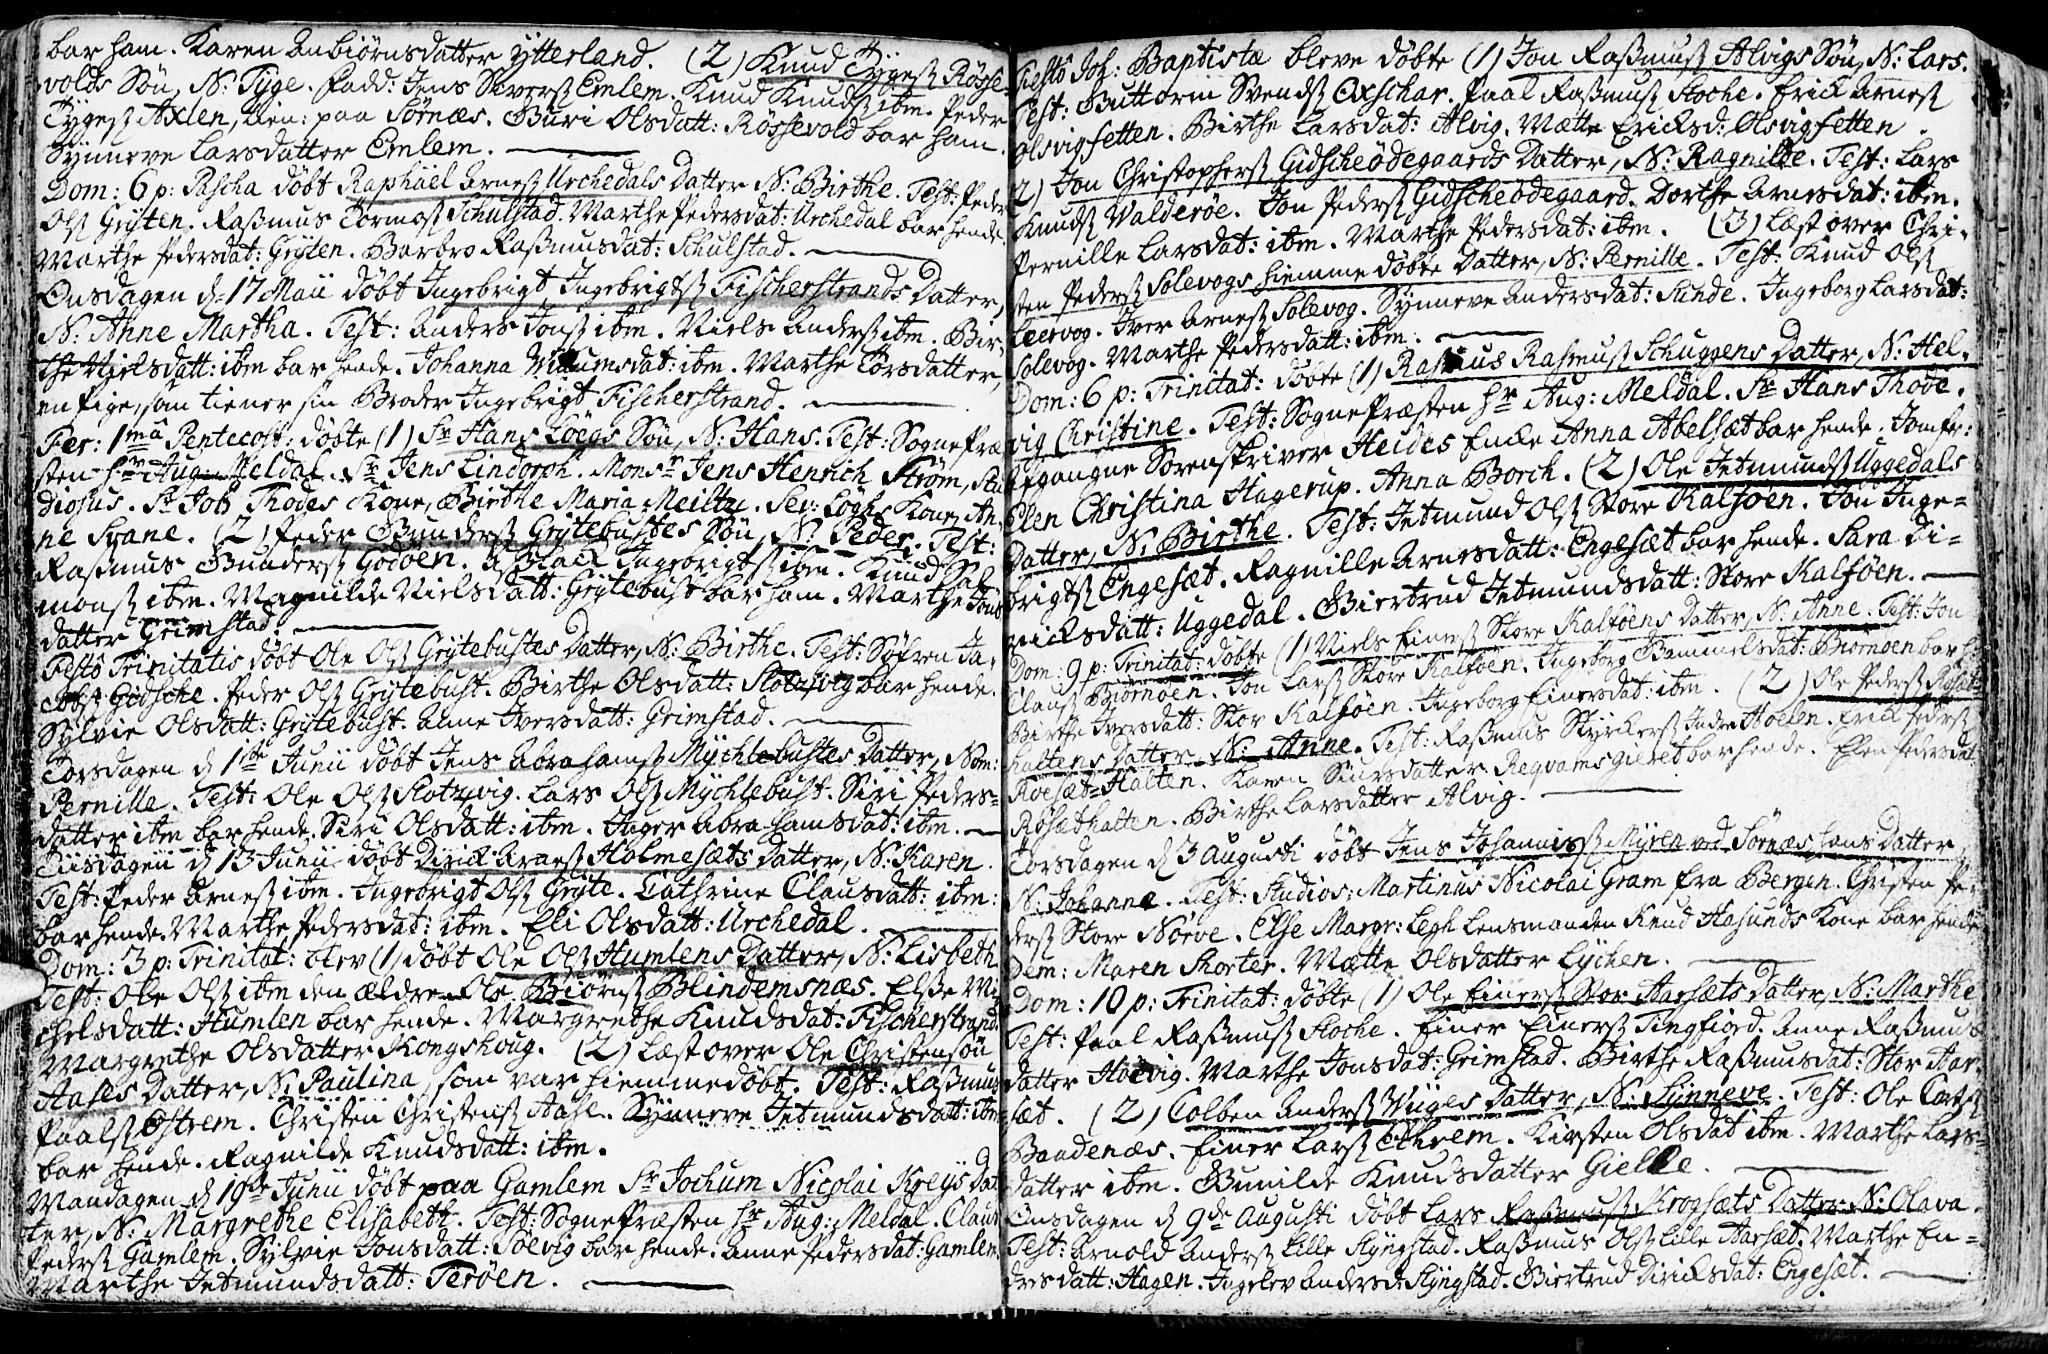 bar ham. Karen Anbiørnsdatter Ytterland. (2) Knud Tygesß Røsse-
volds Søn, N: Tyge. Fadd: Jens Siversß Emlem. Knud Knudsß ibm. Peder
Tygesß Axlen, tien: paa Sørnæs. Guri Olsdatt: Røssevold bar ham.
Synneve Larsdatter Emlem.
Dom: 6 p: Pascha døbt Raphäel Arnesß Urchedals Datter N: Birthe. Test: Peder
Olsß Gryten. Rasmus Tormosß Schulstad. Marthe Pedersdat: Urchedal bar hende.
Marthe Pedersdat: Gryten. Barbro Rasmusdat: Schulstad.
Onsdagen d: 17 Maii døbt Ingebrigt Ingebrigtsß Fischerstrands Datter,
N: Anne Martha. Test: Anders Jonsß ibm. Niels Andersß ibm. Bir-
the Nielsdatt: ibm bar hende. Johanna Willumsdat: ibm. Marthe Torsdatter,
en Pige, som tiener sin Broder Ingebrigt Fischerstrand.
Fer: 1mâ Pentecost: døbte (1) Sr Hans Löegs Søn, N: Hans. Test: SognePræ-
sten Hr Aug: Meldal. Sr Jens Lindorph. Monsr Jens Henrich Strøm, Stu-
diosus. Sr Job Thodes Kone, Birthe Maria Meiltz. Sev: Löghs Kone, An-
ne Svane. (2) Peder Gundersß Grytebustes Søn, N: Peder. Test:
Rasmus Gundersß Godøen. Aslack Ingebrigtsß ibm. Knud Sal-
monsß ibm. Magnilde Nielsdatt: Grytebust bar ham. Marthe Jons
datter Grimstad.
Festô Trinitatis døbt Ole Olsß Grytebustes Datter, N: Birthe. Test: Søfren Ja-
cobsß Gidsche. Peder Olsß Grytebust. Birthe Olsdatt: Slotzvig bar hende.
Sylvie Olsdatt: Grytebust. Anne Iversdatt: Grimstad.
Torsdagen d 1ste Junii døbt Jens Abrahamsß Mychlebustes Datter, Nom:
Pernille. Test: Ole Olsß Slotzvig. Lars Olsß Mychlebust. Siri Peders-
datter ibm bar hende. Siri Olsdatt: ibm. Inger Abrahamsdat: ibm.
Tiisdagen d 13 Junii døbt Dirick Arnesß Holmesæts Datter, N: Karen.
Test: Peder Arnesß ibm. Ingebrigt Olsß Gryte. Cathrine Clausdatt: ibm:
bar hende. Marthe Pedersdat: ibm. Eli Olsdatt: Urchedal.
Dom: 3 p: Trinitat: blev (1) døbt Ole Olsß Humlens Datter, N: Lisbeth
Test: Ole Olsß ibm den ældre. Ole Biørnsß Blindemsnæs. Elsße Mi-
chelsdatt: Humlen bar hende. Margrethe Knudsdat: Fischerstrand.
Margrethe Olsdatter Kongshoug. (2) Læst over Ole Christensøn
Aases Datter, N: Paulina, som var hiemmedøbt. Test: Rasmus
Paalsß Østrem. Christen Christensß Aase. Synneve Jetmundsdatt: ibm
bar hende. Ragnilde Knudsdatt: ibm.
Mandagen d 19de Junii døbt paa Gamlem Sr Jochum Nicolai Kreÿs Dat
ter, N: Margrethe Elisabeth. Test: SognePræsten Hr Aug: Meldal. Claus
Pedersß Gamlem. Sylvie Jonsdatt: Søevig bar hende. Anne Pedersdat: Gamlem.
Marthe Jetmundsdatt: Terøen.
Festô Joh: Baptistæ bleve døbte (1) Jon Rasmusß Alvigs Søn, N: Lars.
Test: Guttorm Svendsß Oxschar. Paal Rasmusß Stoche. Erick Arnesß
Olsvigfetten. Birthe Larsdat: Alvig. Mætte Ericksd: Olsvigfetten.
2) Jon Christophersß Gidscheødegaards Datter, N: Ragnilde. Test: Lars
Knudsß Walderøe. Jon Pedersß Gidscheødegaard. Dorthe Arnesdat: ibm.
Pernille Larsdat: ibm. Marthe Pedersdat: ibm. (3) Læst over Chri-
sten Pedersß Solevogs hiemmedøbte Datter, N: Pernille. Test: Knud Olsß
Leervog. Iver Arnesß Solevog. Synneve Andersdat: Sunde. Ingeborg Larsdat:
Solevog. Marthe Pedersdatt: ibm.
Dom: 6 p: Trinitat: døbte (1) Rasmus Rasmusß Schuggens Datter, N: Hel-
vig Christine. Test: SognePræsten Hr Aug: Meldal. Sr Hans Thode.
Afgangne Sorenskriver Heides Encke Anna Abelsæt bar hende. Jomfr:
Elen Christina Hagerup. Anna Borch. (2) Ole Jetmundsß Uggedals
Datter, N: Birthe. Test: Jetmund Olsß Store Kalføen. Jon Inge-
brigtsß Engesæt. Ragnille Arnesdatt: Engesæt bar hende. Sara Di-
ricksdatt: Uggedal. Giertrud Jetmundsdatt: Store Kalføen.
Dom: 9 p: Trinitat: døbte (1) Niels Einersß Store Kalføens Datter, N: Anne. Test: Jon
Clausß Biørnøen. Jon Larsß Store Kalføen. Ingeborg Gammelsdat: Biørnøen bar h:
Birthe Iversdatt: Stor Kalføen. Ingeborg Einersdat: ibm. (2) Ole Pedersß Røsæt-
haltens Datter N: Anne. Test: Rasmus Styrckersß Indre Hoelen. Erick Pedersß
Roesæt-Halten. Karen Siursdatter Reqvamsgieret bar hende. Elen Pedersdat
Røsæthalten. Birthe Larsdatter Alvig.
Torsdagen d 3 Augusti døbt Jens Johannisß Myren ved Sørnæs, hans Datter,
N: Johanne. Test: Studios: Martinus Nicolai Gram fra Bergen. Christen Pe-
dersß Store Nørve. Else Margr: Legh Lensmanden Knud Hasunds Kone bar hende
Dem: Maren Skorter. Mætte Olsdatter Lychen.
Dom: 10 p: Trinitat: døbte (1) Ole Einersß Stor Aarsæts Datter, N: Marthe
Test: Paal Rasmusß Stoche. Einer Einersß Tingfiord. Anne Rasmus-
datter Høevig. Marthe Jonsdat: Grimstad. Birthe Rasmusdat: Stor Aar-
sæt. (2) Colben Andersß Wiiges Datter, N: Synneve. Test: Ole Carlsß
Baadenæs. Einer Larsß Ethrem. Kirsten Olsdat ibm. Marthe Lars-
datter ibm. Gunilde Knudsdatter Gielde.
Onsdagen d 9de Augusti døbt Lars Rasmusß Krogsæts Datter N: Olava.
Test: Arnold Andersß Lille Slyngstad. Rasmus Olsß Lille Aarsæt. Marthe En-
dresdatt: Hagen. Ingelev Andersd: Slyngstad. Giertrud Diricksdat: Engesæt.